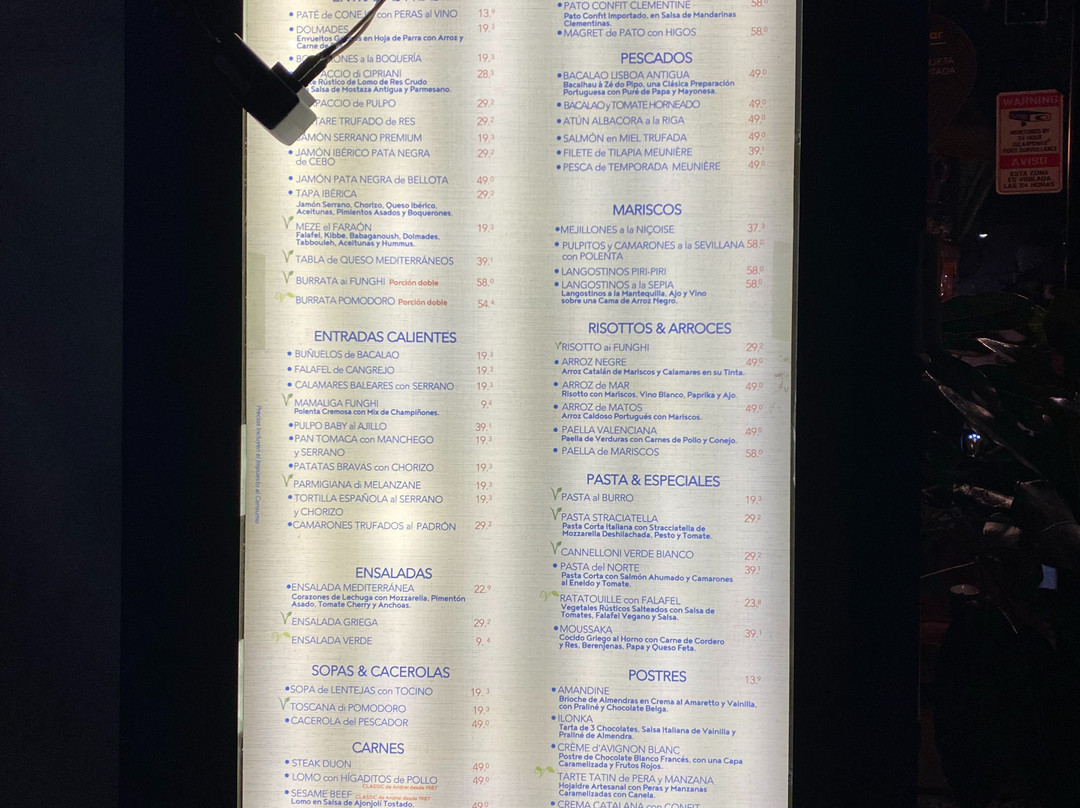 PATÉ de CONEJO con PERAS al VINO 13.9
DOLMADES 19.3
Envueltos en Hoja de Parra con Arroz y
Carne de
a la BOQUERÍA 19.3
di CIPRIANI 28.3
Rústico de Lomo de Res Crudo
Salsa de Mostaza Antigua y Parmesano.
de PULPO 29.2
TRUFADO de RES 29.2
JAMÓN SERRANO PREMIUM 19.3
JAMÓN IBÉRICO PATA NEGRA 29.2
de CEBO
JAMÓN PATA NEGRA de BELLOTA 49.0
TAPA IBÉRICA 29.2
Jamón Serrano, Chorizo, Queso Ibérico,
Aceitunas, Pimientos Asados y Boquerones.
MEZE el FARAÓN 19.3
Falafel, Kibbe, Babaganoush, Dolmades,
Tabbouleh, Aceitunas y Hummus.
TABLA de QUESO MEDITERRÁNEOS 39.1
BURRATA ai FUNGHI Porción doble 58.0
BURRATA POMODORO Porción doble 54.4
ENTRADAS CALIENTES
BUÑUELOS de BACALAO 19.3
FALAFEL de CANGREJO 19.3
CALAMARES BALEARES con SERRANO 19.3
MAMALIGA FUNGHI 9.4
Polenta Cremosa con Mix de Champiñones.
PULPO BABY al AJILLO 39.1
PAN TOMACA con MANCHEGO 19.3
y SERRANO
PATATAS BRAVAS con CHORIZO 19.3
PARMIGIANA di MELANZANE 19.3
TORTILLA ESPAÑOLA al SERRANO 19.3
y CHORIZO
CAMARONES TRUFADOS al PADRÓN 29.2
ENSALADAS
ENSALADA MEDITERRÁNEA 22.9
Corazones de Lechuga con Mozzarella, Pimentón
Asado, Tomate Cherry y Anchoas.
ENSALADA GRIEGA 29.2
ENSALADA VERDE 9.4
SOPAS & CACEROLAS
SOPA de LENTEJAS con TOCINO 19.3
TOSCANA di POMODORO 19.3
CACEROLA del PESCADOR 49.0
CARNES
STEAK DIJON 49.0
LOMO con HÍGADITOS de POLLO 49.0
CLASSIC de Andrei desde 1987
SESAME BEEF CLASSIC de Andrei desde 1987
Lomo en Salsa de Ajonjolí Tostado. 49.0
Precios Incluyen el Impuesto al Consumo
PATO CONFIT CLEMENTINE 58.0
Pato Confit Importado, en Salsa de Mandarinas
Clementinas.
MAGRET de PATO con HIGOS 58.0
PESCADOS
BACALAO LISBOA ANTIGUA 49.0
Bacalhau à Zé do Pipo, una Clásica Preparación
Portuguesa con Puré de Papa y Mayonesa.
BACALAO y TOMATE HORNEADO 49.0
ATÚN ALBACORA a la RIGA 49.0
SALMÓN en MIEL TRUFADA 49.0
FILETE de TILAPIA MEUNIÈRE 39.1
PESCA de TEMPORADA MEUNIÈRE 49.0
MARISCOS
MEJILLONES a la NIÇOISE 37.3
PULPITOS y CAMARONES a la SEVILLANA 58.0
con POLENTA
LANGOSTINOS PIRI-PIRI 58.0
LANGOSTINOS a la SEPIA 58.0
Langostinos a la Mantequilla, Ajo y Vino
sobre una Cama de Arroz Negro.
RISOTTOS & ARROCES
RISOTTO ai FUNGHI 29.2
ARROZ NEGRE 49.0
Arroz Catalán de Mariscos y Calamares en su Tinta.
ARROZ de MAR 49.0
Risotto con Mariscos, Vino Blanco, Paprika y Ajo.
ARROZ de MATOS 49.0
Arroz Caldoso Portugués con Mariscos.
PAELLA VALENCIANA 49.0
Paella de Verduras con Carnes de Pollo y Conejo.
PAELLA de MARISCOS 58.0
PASTA & ESPECIALES
PASTA al BURRO 19.3
PASTA STRACIATELLA 29.2
Pasta Corta Italiana con Stracciatella de
Mozzarella Deshilachada, Pesto y Tomate.
CANNELLONI VERDE BIANCO 29.2
PASTA del NORTE 39.1
Pasta Corta con Salmón Ahumado y Camarones
al Eneldo y Tomate.
RATATOUILLE con FALAFEL 23.8
Vegetales Rústicos Salteados con Salsa de
Tomates, Falafel Vegano y Salsa.
MOUSSAKA 39.1
Cocido Griego al Horno con Carne de Cordero
y Res, Berenjenas, Papa y Queso Feta.
POSTRES 13.9
AMANDINE
Brioche de Almendras en Crema al Amaretto y Vainilla,
con Praliné y Chocolate Belga.
ILONKA
Tarta de 3 Chocolates, Salsa Italiana de Vainilla y
Praliné de Almendra.
CRÈME d'AVIGNON BLANC
Postre de Chocolate Blanco Francés, con una Capa
Caramelizada y Frutos Rojos.
TARTE TATIN de PERA y MANZANA
Hojaldre Artesanal con Peras y Manzanas
Caramelizadas con Canela.
CREMA CATALANA con CONFIT
WARNING
MONITORED BY
24 HOUR
SURVEILLANCE
AVISO
ESTA ZONA
ES VIGILADA
LAS 24 HORAS